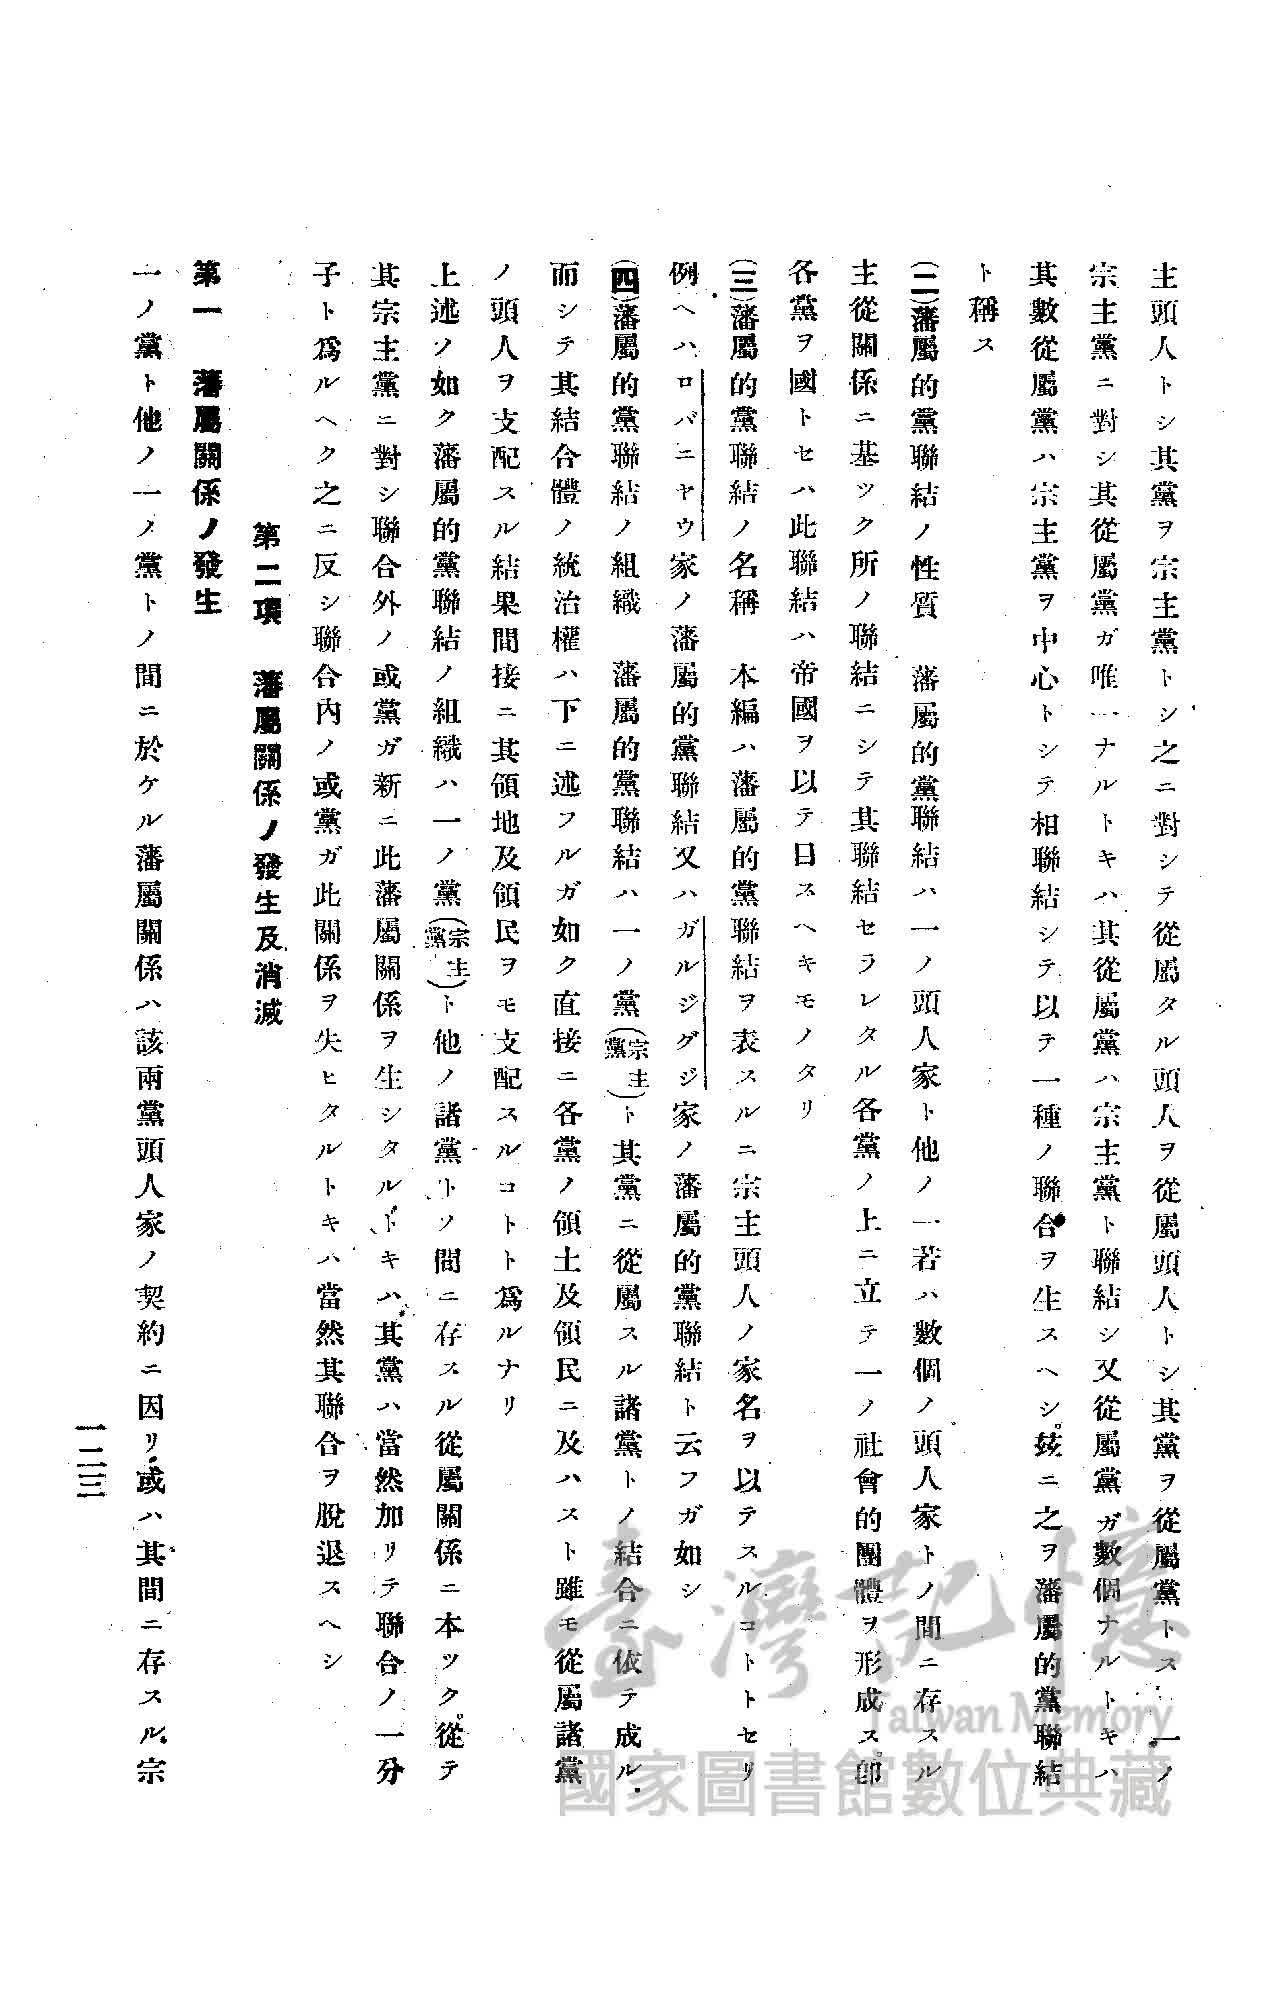 主頭人トシ其黨ヲ宗主黨トシ之ニ對シテ從屬タル頭人ヲ從屬頭人トシ其黨ヲ從屬黨トス 一ノ
宗主黨ニ對シ其從屬黨ガ唯一ナルトキハ其從屬黨ハ宗主黨ト聯結シ又從屬黨ガ數個ナルトキハ
其數從屬黨ハ宗主黨ヲ中心トシテ相聯結シテ以テ一種ノ聯合ヲ生スヘシ。玆ニ之ヲ藩屬的黨聯結
ト稱ス
(二)藩屬的黨聯結ノ性質 藩屬的黨聯結ハ一ノ頭人家ト他ノ一若ハ數個ノ頭人家トノ間ニ存スル
主從關係ニ基ツク所ノ聯結ニシテ其聯結セラレタル各黨ノ上ニ立テ一ノ社會的團體ヲ形成ス。卽
各黨ヲ國トセハ此聯結ハ帝國ヲ以テ目スヘキモノタリ
(三)藩屬的黨聯結ノ名稱 本編ハ藩屬的黨聯結ヲ表スルニ宗主頭人ノ家名ヲ以テスルコトトセリ
例ヘハロバニヤウ家ノ藩屬的黨聯結又ハガルジグジ家ノ藩屬的黨聯結ト云フガ如シ
(四)藩屬的黨聯結ノ組織 藩屬的黨聯結ハ一ノ黨(宗主黨)ト其黨ニ從屬スル諸黨トノ結合ニ依テ成ル
而シテ其結合體ノ統治權ハ下ニ述フルガ如ク直接ニ各黨ノ領土及領民ニ及ハスト雖モ從屬諸黨
ノ頭人ヲ支配スル結果間接ニ其領地及領民ヲモ支配スルコトト爲ルナリ
上述ノ如ク藩屬的黨聯結ノ組織ハ一ノ黨(宗主黨)ト他ノ諸黨トノ間ニ存スル從屬關係ニ本ツク。從テ
其宗主黨ニ對シ聯合外ノ或黨ガ新ニ此藩屬關係ヲ生シタルトキハ其黨ハ當然加リテ聯合ノ一分
子ト爲ルヘク之ニ反シ聯合內ノ或黨ガ此關係ヲ失ヒタルトキハ當然其聯合ヲ脫退スヘシ
第二項 藩屬關係ノ發生及消滅
第一 藩屬關係ノ發生
一ノ黨ト他ノ一ノ黨トノ間ニ於ケル藩屬關係ハ該兩黨頭人家ノ契約ニ因リ或ハ其間ニ存スル宗
一二三
臺灣記憶
Taiwan Memory
國家圖書館數位典藏